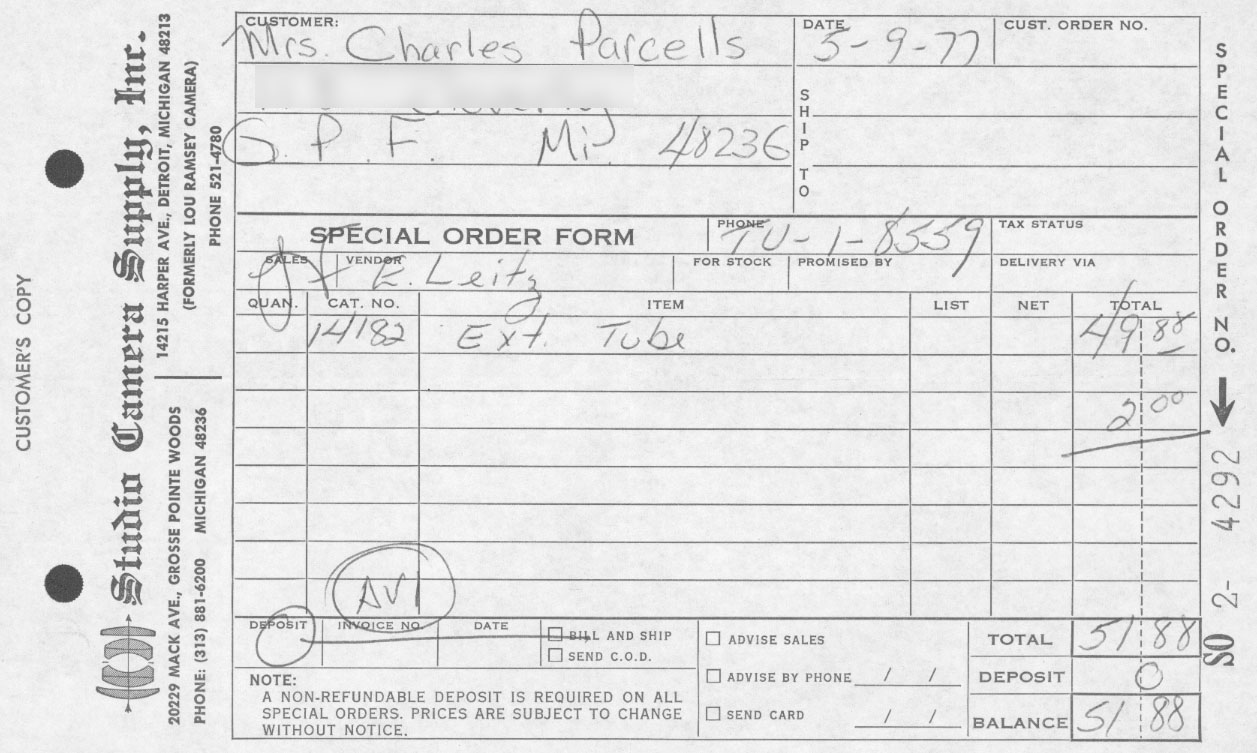 CUSTOMER'S COPY
Studio Camera Supply, Inc.
14215 HARPER AVE., DETROIT, MICHIGAN 48213
(FORMERLY LOU RAMSEY CAMERA)
PHONE 521-4780
20229 MACK AVE., GROSSE POINTE WOODS
MICHIGAN 48236
PHONE: (313) 881-6200
CUSTOMER: Mrs. Charles Parcells
DATE 5-9-77
CUST. ORDER NO.
SHIP TO
G. P. F. Mi 48236
SPECIAL ORDER FORM
PHONE TU-1-8559
TAX STATUS
SALES
VENDOR E. Leitz
FOR STOCK
PROMISED BY
DELIVERY VIA
QUAN. CAT. NO. ITEM LIST NET TOTAL
14182 Ext. Tube 49 88
2 00
AV1
DEPOSIT INVOICE NO. DATE
BILL AND SHIP
SEND C.O.D.
ADVISE SALES
ADVISE BY PHONE / /
SEND CARD / /
TOTAL 51 88
DEPOSIT 0
BALANCE 51 88
NOTE:
A NON-REFUNDABLE DEPOSIT IS REQUIRED ON ALL
SPECIAL ORDERS. PRICES ARE SUBJECT TO CHANGE
WITHOUT NOTICE.
SPECIAL ORDER NO.
SO 2- 4292